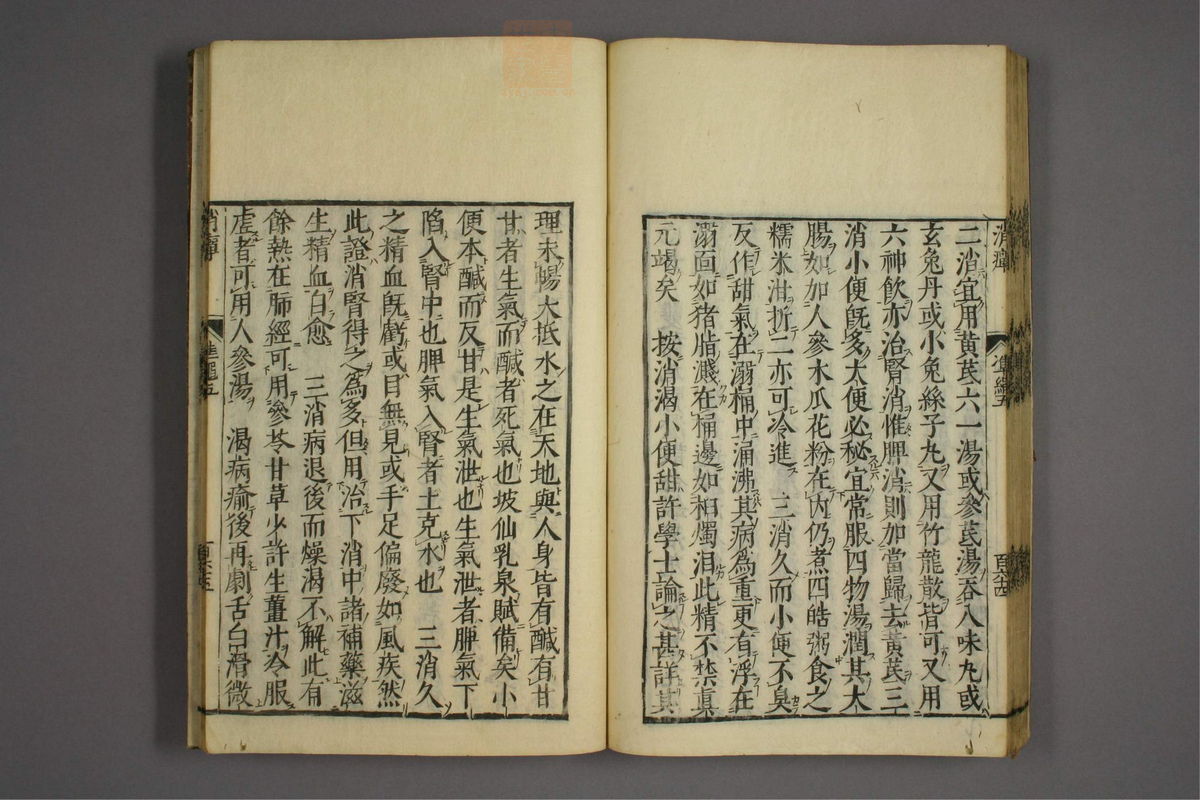 二消宜用黄芪六一湯或參芪湯吞八味丸或
玄兔丹或小兔絲子丸又用竹龍散皆可又用
六神飲亦治腎消惟脾消則加當歸去黄芪三
消小便既多大便必秘宜常服四物湯潤其大
腸如加人參木瓜花粉在内仍煮四皓粥食之
糯米泔折二亦可冷進 三消久而小便不臭
反作甜氣在溺桶中涌沸其病為重更有浮在
溺面如猪脂濺在桶邊如柏燭泪此精不禁真
元竭矣 按消渴小便甜許學士論之甚詳其
理未暢大抵水之在天地與人身皆有鹹有甘
甘者生氣而鹹者死氣也坡仙乳泉賦備矣小
便本鹹而反甘是生氣泄也生氣泄者脾氣下
陷入腎中也脾氣入腎者土克水也 三消久
之精血既虧或目無見或手足偏廢如風疾然
此證消腎得之為多但用治下消中諸補藥滋
生精血自愈 三消病退後而燥渴不解此有
餘熱在肺經可用參苓甘草少許生薑汁冷服
虛者可用人參湯 渴病瘉後再劇舌白滑微
消癉